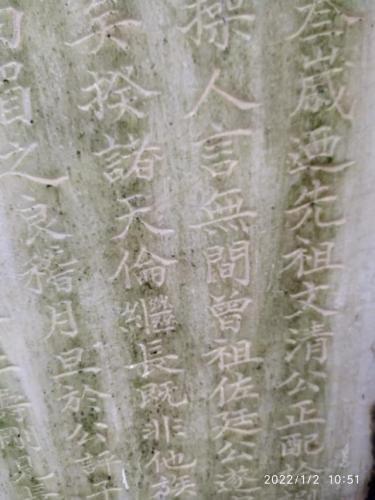 叁歲迺先祖文清公正配
操人言無間曾祖佐廷公遊
矣揆諸天倫繼長既非他族
之良稽月旦於公評
2022/1/2 10:51